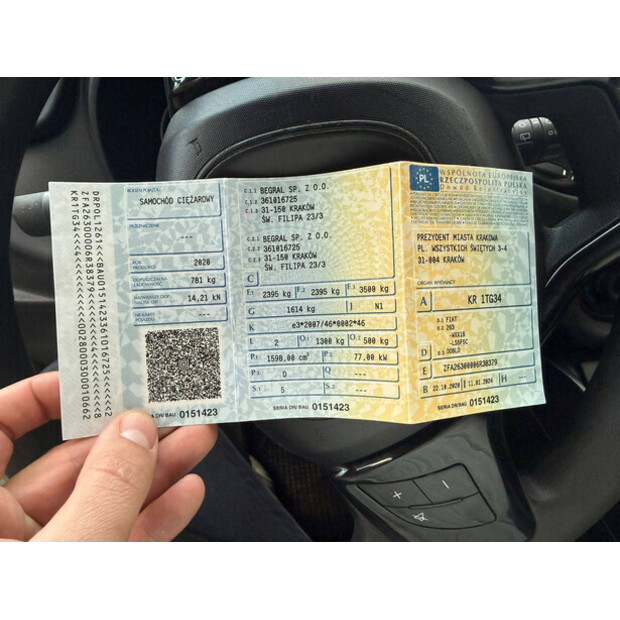 DRPOL1261<<<BAU0151423361016725<<<<<2
ZFA26300006R38379<<<<<<<<<<<<<<<<8
KR1TG34<<<<<<<<<<<<0028000300010662
RODZAJ POJAZDU
SAMOCHÓD CIĘŻAROWY
PRZEZNACZENIE
---
ROK PRODUKCJI
2020
DOPUSZCZALNA ŁADOWNOŚĆ
781 kg
NAJWIĘKSZY DOP. NACISK OSI
14,21 kN
---
SERIA DR/BAU 0151423
C.1.1 BEGRAL SP. Z O.O.
C.1.2 361016725
C.1.3 31-150 KRAKÓW
ŚW. FILIPA 23/3
C.2.1 BEGRAL SP. Z O.O.
C.2.2 361016725
C.2.3 31-150 KRAKÓW
ŚW. FILIPA 23/3
C
F.1 2395 kg F.2 2395 kg F.3 3500 kg
G 1614 kg J N1
K e3*2007/46*0002*46
L 2 O.1 1300 kg O.2 500 kg
P.1 1598,00 cm³ P.2 77,00 kW
P.3 D Q ---
S.1 5 S.2 ---
SERIA DR/BAU 0151423
PL
WSPÓLNOTA EUROPEJSKA
RZECZPOSPOLITA POLSKA
Dowód Rejestracyjny
PREZYDENT MIASTA KRAKOWA
PL. WSZYSTKICH ŚWIĘTYCH 3-4
31-004 KRAKÓW
ORGAN WYDAJĄCY
A KR 1TG34
D.1 FIAT
D.2 263
D D.3 DOBLO
E ZFA26300006R38379
B 22.10.2020 I 11.01.2024 H ---
SERIA DR/BAU 0151423
+ −